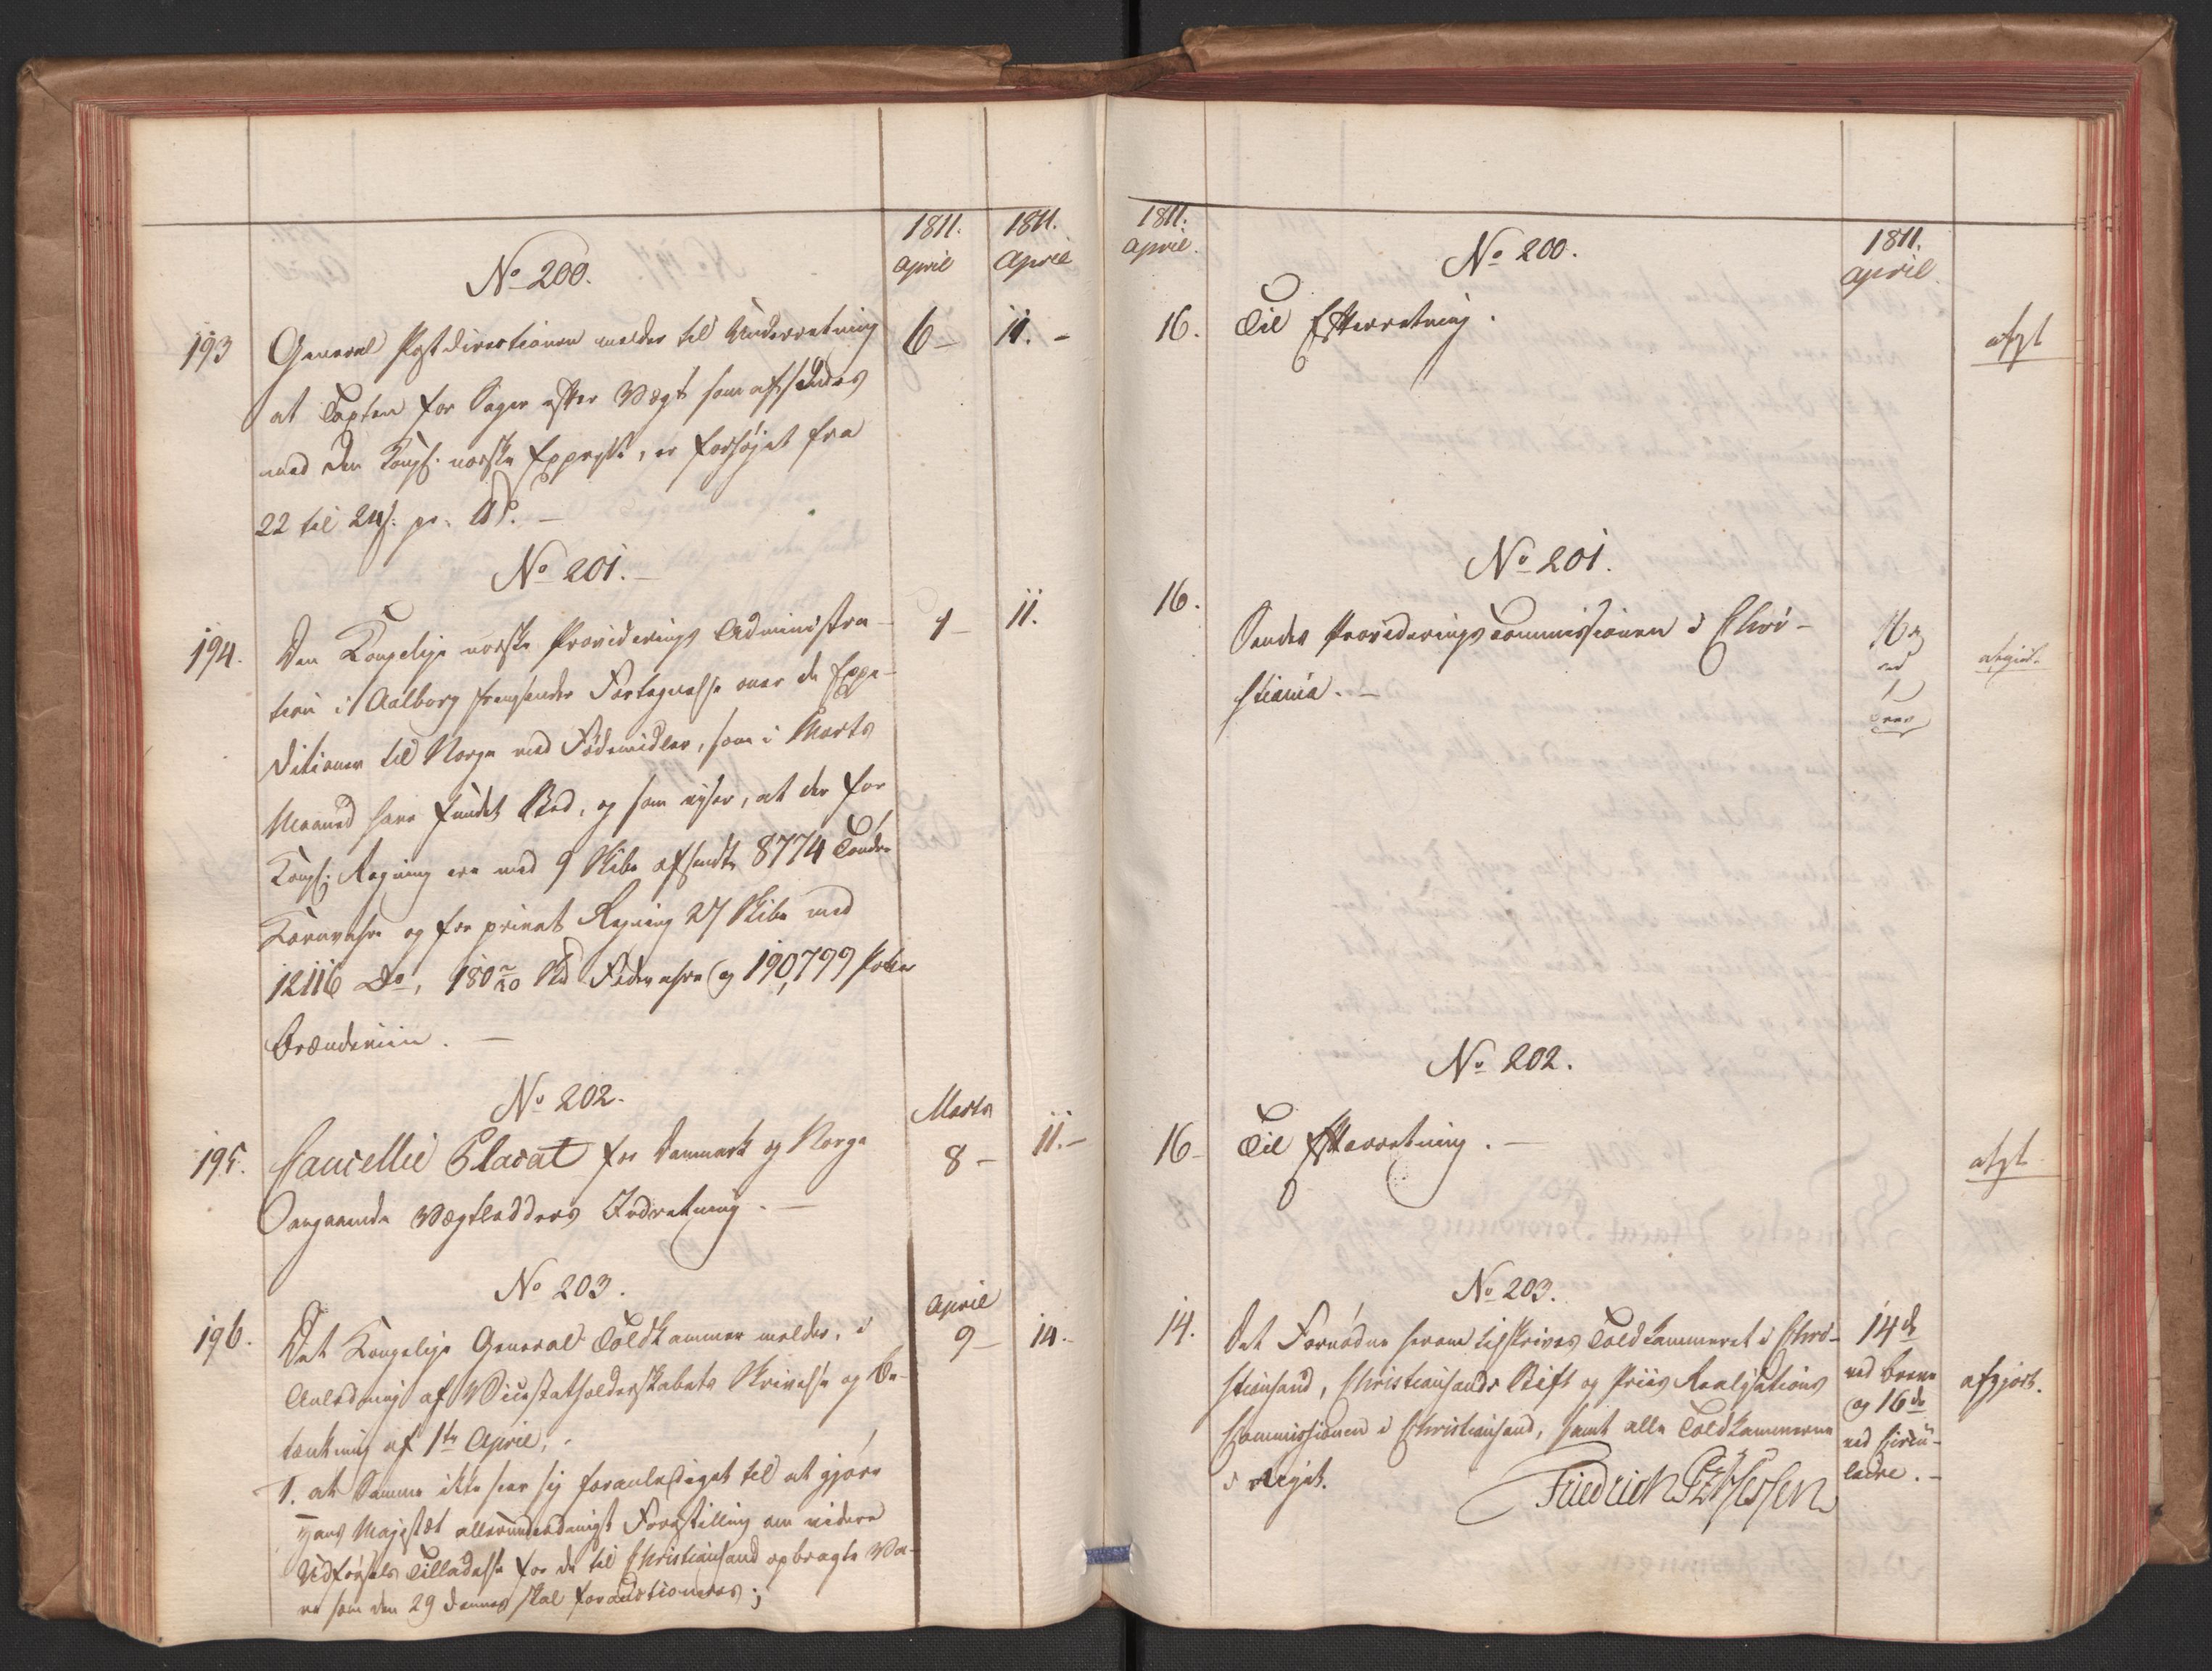 1811. 1811.
April April
No 200.
193 General Postdirectionen melder til Underretning 6 – 11. –
at Taxten for Sager efter Vægt som afsendes
med den Kongl. norske Expresse, er forhøjet fra
22 til 24 s. pr. ℔. –
No 201. –
194. Den Kongelige norske Provideringes Administra- 1 – 11.
tion i Aalborg fremsender Fortegnelse over de Expe-
ditioner til Norge med Födemidler, som i Marts
Maaned have fundet Sted, og som viser, at der for
Kongl. Regning ere med 9 Skibe afsendte 8774 Tønder
Kornvahre og for privat Regning 27 Skibe med
12116 Do, 180 Skd Fedevahre og 190,799 Potter
Brændeviin. –
No 202.
Marts
195. Cancellie Placat for Danmark og Norge 8 – 11. –
Angaaende Vægtlodders Indretning. –
No 203.
April
196. Det Kongelige General Toldkammer melder, i 9 – 14. –
Anledning af Vicestatholderskabets Skrivelse og Be-
tænkning af 1te April,
1. at Samme ikke seer sig foranlediget til at gjøre
Hans Majestæt allerunderdanigst Forestilling om videre
Udførsels Tilladelse for de til Christiansand opbragte Va-
re som den 29 dennes skal forauctioneres;
1811.
April.
No 200.
1811.
April.
16. Til Efterretning.
afgt
No 201.
16. Sendes Provideringscommissionen i Chri-
stiania. –
16de
ved
1
Brev
afgiort
No 202.
16 – Til Efterretning. –
afgt
No 203.
14. Det Fornødne herom tilskrives Toldkammeret i Chri-
stiansand, Christiansands Stift og Priis Realisations
Commissionen i Christiansand, samt alle Toldkamrene
i Riget.
14de
ved Breve
og 16de
ved Circu-
laire. –
afgjort.
Friedrich PzHessen